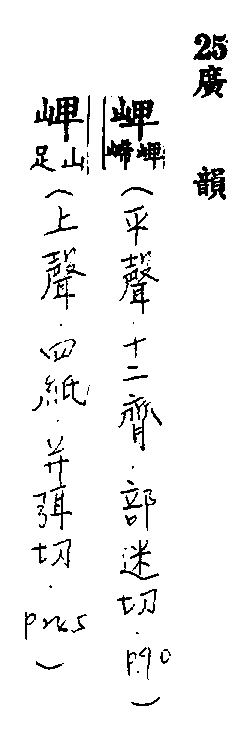 25廣韻
崥崥崹(平聲．十二齊．部迷切．p.90)
崥山足(上聲．四紙．并弭切．p245)